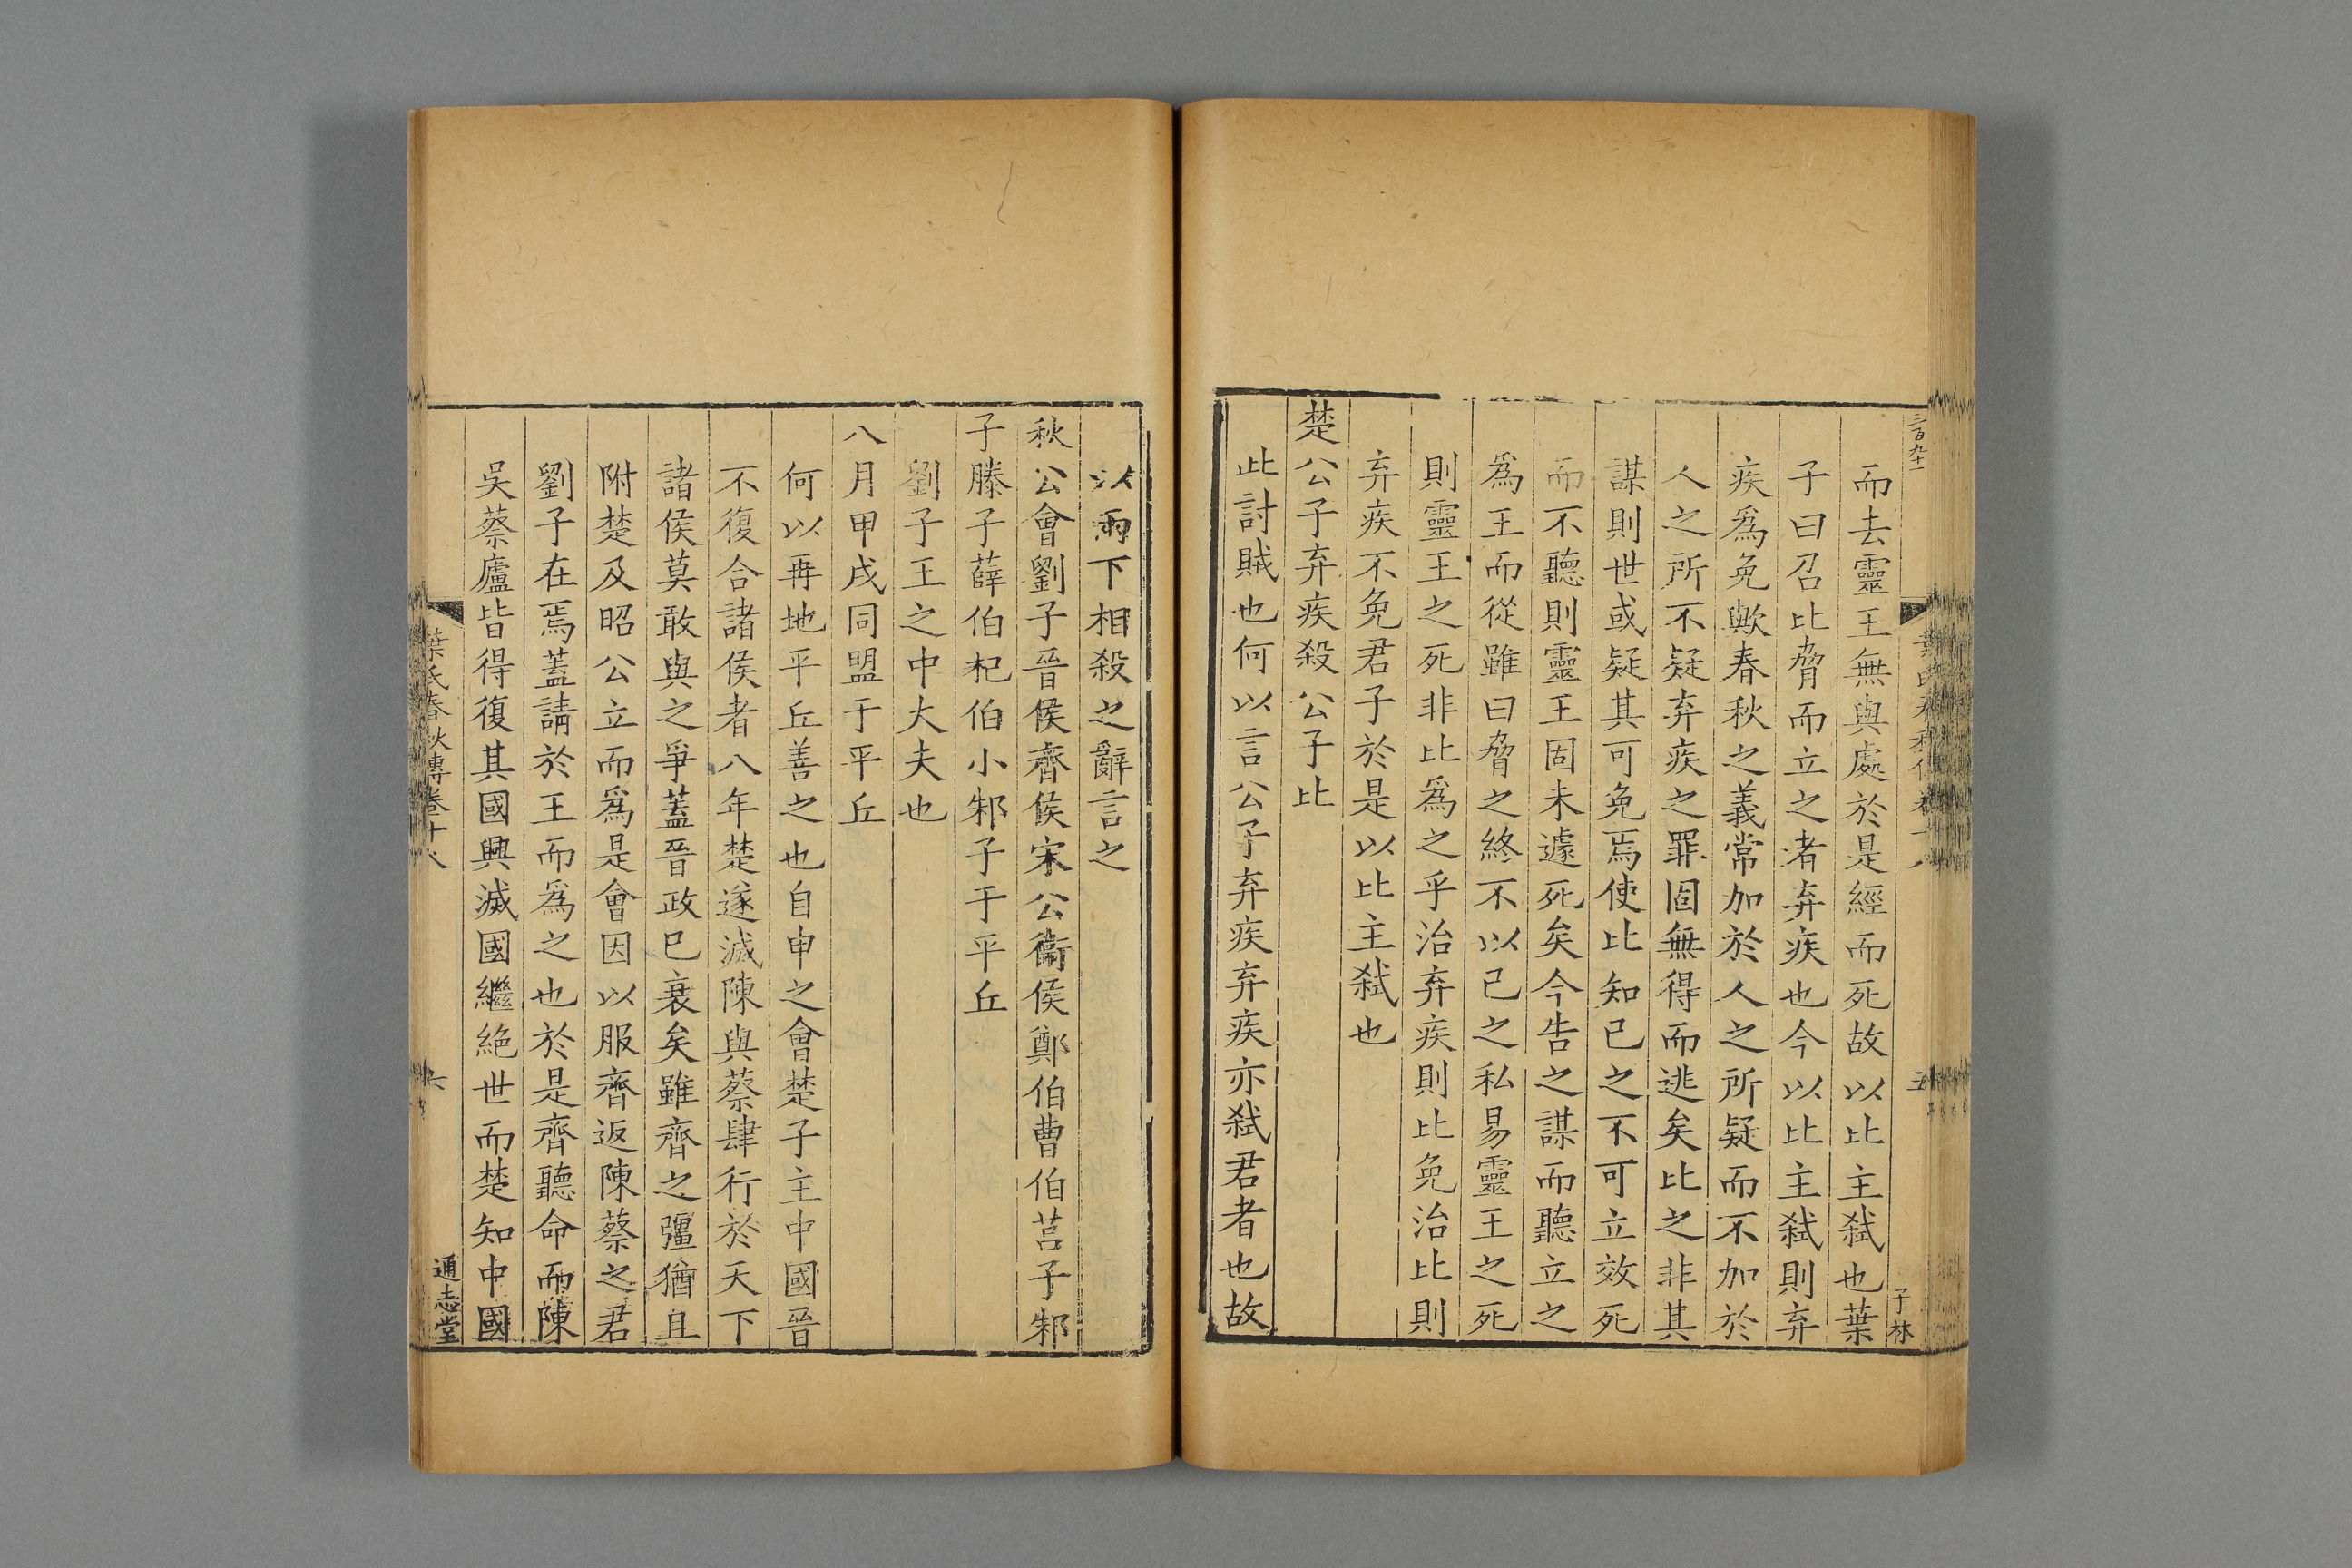 三百九十一
而去靈王無與處於是經而死故以比主弑也葉
子曰召比脅而立之者弃疾也今以比主弑則弃
疾爲免歟春秋之義常加於人之所疑而不加於
人之所不疑弃疾之罪固無得而逃矣比之非其
謀則世或疑其可免焉使比知已之不可立效死
而不聽則靈王固未遽死矣今告之謀而聽立之
爲王而從雖曰脅之終不以己之私易靈王之死
則靈王之死非比爲之乎治弃疾則比免治比則
弃疾不免君子於是以比主弑也
楚公子弃疾殺公子比
此討賊也何以言公子弃疾弃疾亦弑君者也故
五
子林
以兩下相殺之辭言之
秋公會劉子晉侯齊侯宋公衞侯鄭伯曹伯莒子邾
子滕子薛伯杞伯小邾子于平丘
劉子王之中大夫也
八月甲戌同盟于平丘
何以再地平丘善之也自申之會楚子主中國晉
不復合諸侯者八年楚遂滅陳與蔡肆行於天下
諸侯莫敢與之爭蓋晉政已衰矣雖齊之彊猶且
附楚及昭公立而爲是會因以服齊返陳蔡之君
劉子在焉蓋請於王而爲之也於是齊聽命而陳
吳蔡廬皆得復其國興滅國繼絶世而楚知中國
葉氏春秋傳卷十八
六
通志堂